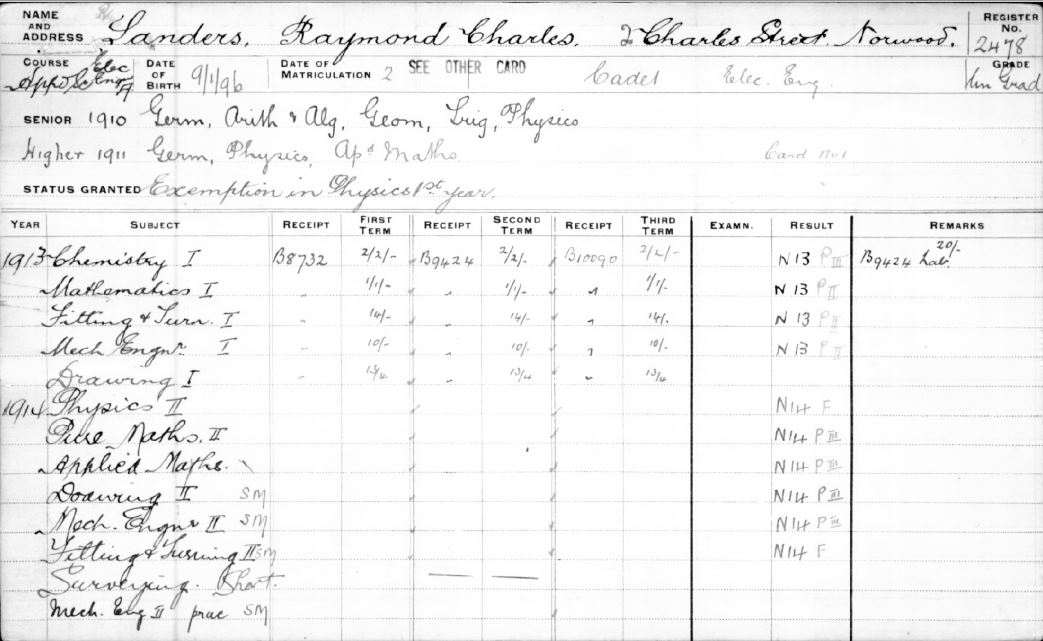 NAME AND ADDRESS Landers, Raymond Charles. 2 Charles Street, Norwood. REGISTER No. 2478
COURSE App Sc Elec Engr A DATE OF BIRTH 9/1/96 DATE OF MATRICULATION 2 SEE OTHER CARD Cadet Elec. Eng. GRADE Un Grad
SENIOR 1910 Germ, Arith & Alg, Geom, Trig, Physics
Higher 1911 Germ, Physics, Apd Maths. Card No 1
STATUS GRANTED Exemption in Physics 1st year.
YEAR SUBJECT RECEIPT FIRST TERM RECEIPT SECOND TERM RECEIPT THIRD TERM EXAMN. RESULT REMARKS
1913 Chemistry I B8732 2/2/- B9424 2/2/- B10090 2/2/- N 13 P III B9424 Lab. 20/-
Mathematics I " 1/1/- " 1/1/- " 1/1/- N 13 P II
Fitting & Turn. I " 14/- " 14/- " 14/- N 13 P II
Mech Engnr I " 10/- " 10/- " 10/- N 13 P II
Drawing I " 13/4 " 13/4 " 13/4
1914 Physics II N14 F
Pure Maths. II N14 P III
Applied Maths. N14 P III
Drawing II SM N14 P III
Mech. Engnr II SM N14 P III
Fitting & Turning II SM N14 F
Surveying. Short.
Mech. Eng II prac SM